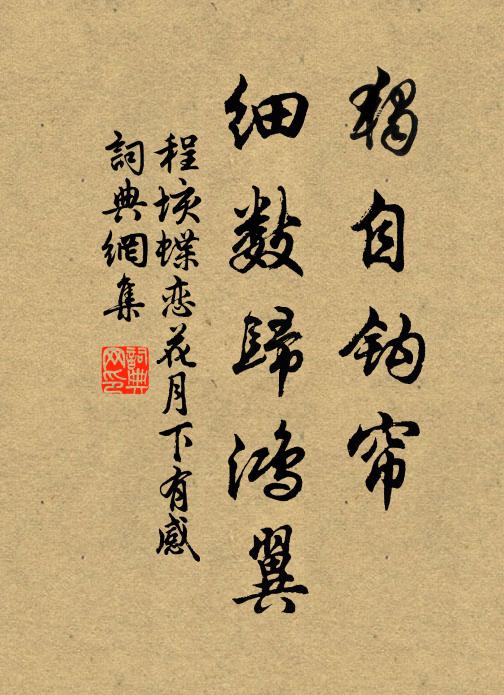 独自钩帘
细数歸鸿翼
程垓蝶恋花月下有感
詞典網集
詞典网印